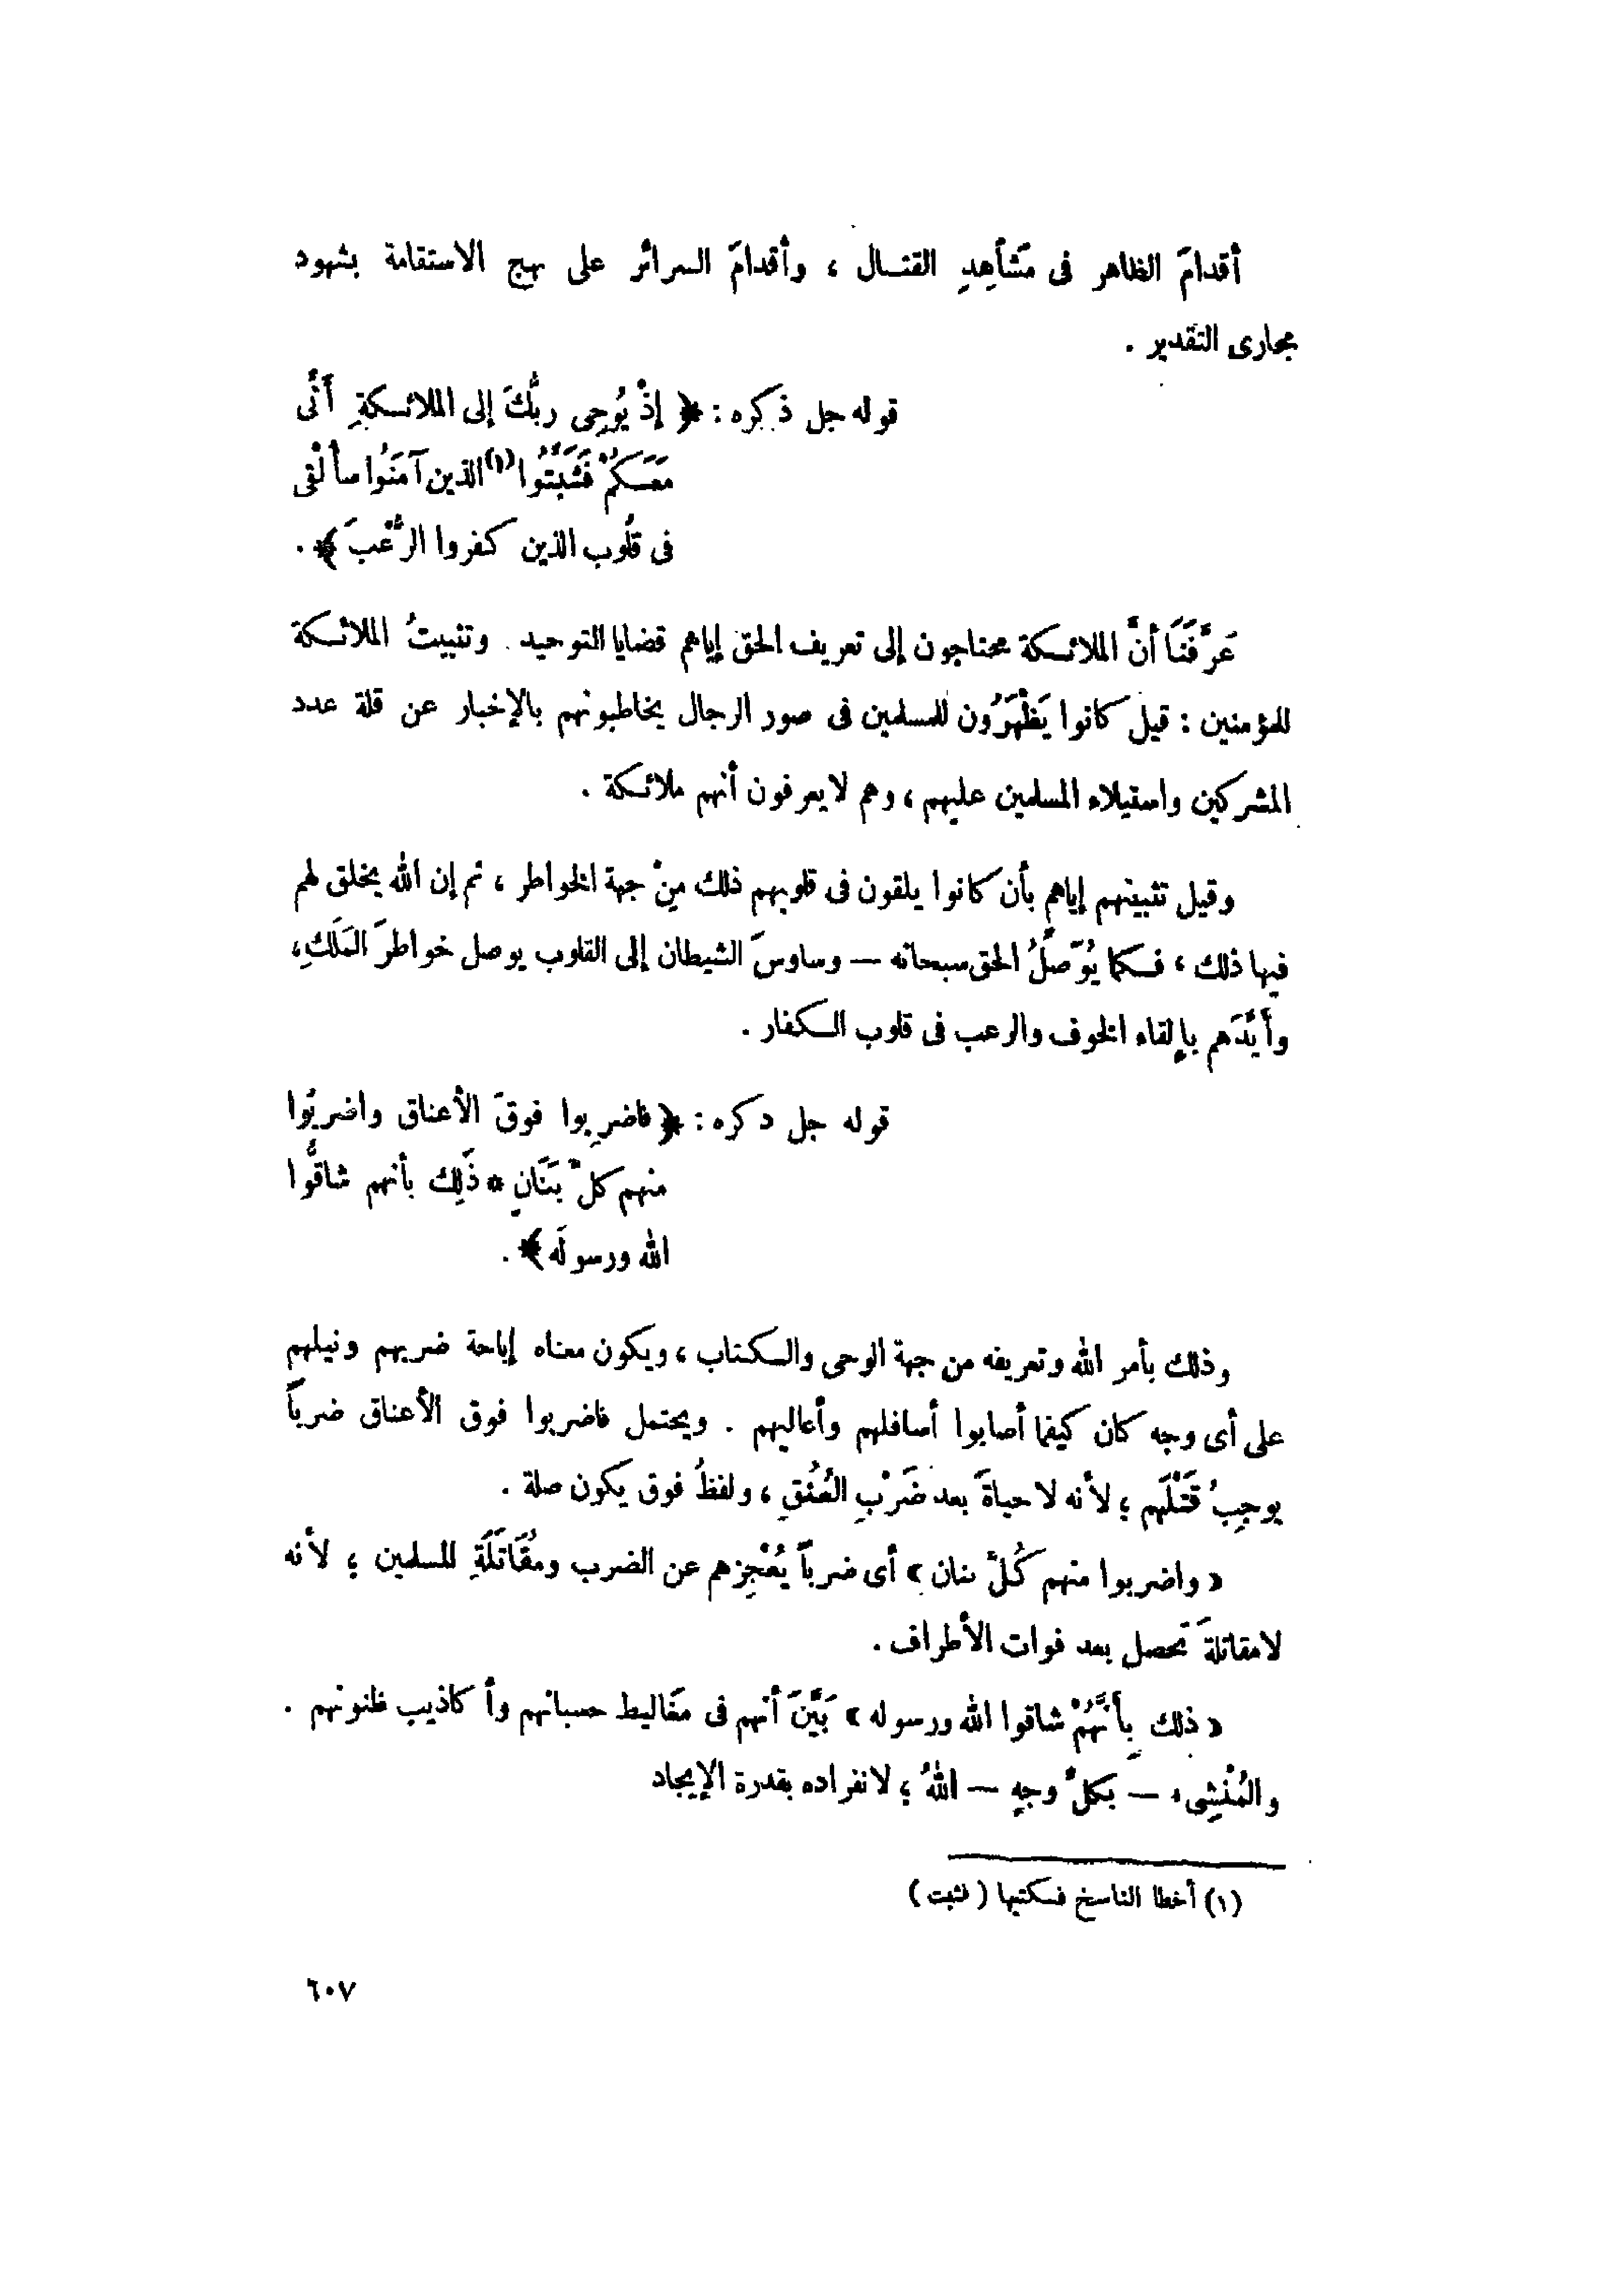 أقدامَ الظاهر فى مَشَاهِدِ القتـال ، وأقدامَ السرائر على نهج الاستقامة بشهود
مجارى التقدير .
قوله جل ذكره : ﴿ إذْ يُوحِى ربُّكَ إلى الملائـكةِ أَنِّى
مَعَـكُمْ فَثَبِّتُوا(١) الذين آمَنُوا سأُلْقِى
فى قلُوب الذين كفروا الرُّعْبَ ﴾ .
عَرَّفَنَا أنَّ الملائـكة محتاجون إلى تعريف الحق إياهم قضايا التوحيد . وتثبيتُ الملائـكة
للمؤمنين : قيل كانوا يَظْهَرُون للمسلمين فى صور الرجال يخاطبونهم بالإخبار عن قلة عدد
المشركين واستيلاء المسلمين عليهم ، وهم لا يعرفون أنهم ملائـكة .
وقيل تثبيتهم إياهم بأن كانوا يلقون فى قلوبهم ذلك مِنْ جهة الخواطر ، ثم إن الله يخلق لهم
فيها ذلك ، فـكما يُوَصِّلُ الحق سبحانه — وساوسَ الشيطان إلى القلوب يوصل خواطرَ المَلَكِ،
وأَيَّدَهم بإلقاء الخوف والرعب فى قلوب الـكفار .
قوله جل ذكره : ﴿ فاضرِبوا فوقَ الأعناق واضربُوا
منهم كلَّ بَنَانٍ * ذَلِك بأنهم شاقُّوا
الله ورسولَه ﴾ .
وذلك بأمر الله وتعريفه من جهة الوحى والـكتاب ، ويكون معناه إباحة ضربهم ونيلهم
على أى وجه كان كيفما أصابوا أسافلهم وأعاليهم . ويحتمل فاضربوا فوق الأعناق ضرباً
يوجِبُ قَتْلَهم ؛ لأنه لا حياةَ بعد ضَرْبِ العُنُقِ ، ولفظُ فوق يكون صلة .
« واضربوا منهم كُلَّ بنان » أى ضرباً يُعْجِزهم عن الضرب ومُقَاتَلَةِ المسلمين ؛ لأنه
لا مقاتلةَ تحصل بعد فوات الأطراف .
« ذلك بِأَنَّهُمْ شاقوا الله ورسوله » بَيَّنَ أنهم فى مَغَاليط حسبانهم وأكاذيب ظنونهم .
والمُنْشِىء — بكلِّ وجهٍ — اللهُ ؛ لانفراده بقدرة الإيجاد
(١) أخطا الناسخ فـكتبها ( فثبت )
٦٠٧